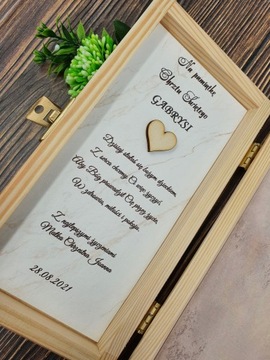 Na pamiątkę
Chrztu Świętego
GABRYSI
Dzisiaj stałaś się bożym dzieckiem,
Z serca chcemy Ci więc życzyć
Aby Bóg prowadził Cię przez życie,
W zdrowiu, miłości i pokoju.
Z najlepszymi życzeniami
Matka Chrzestna Joanna
28.08.2021